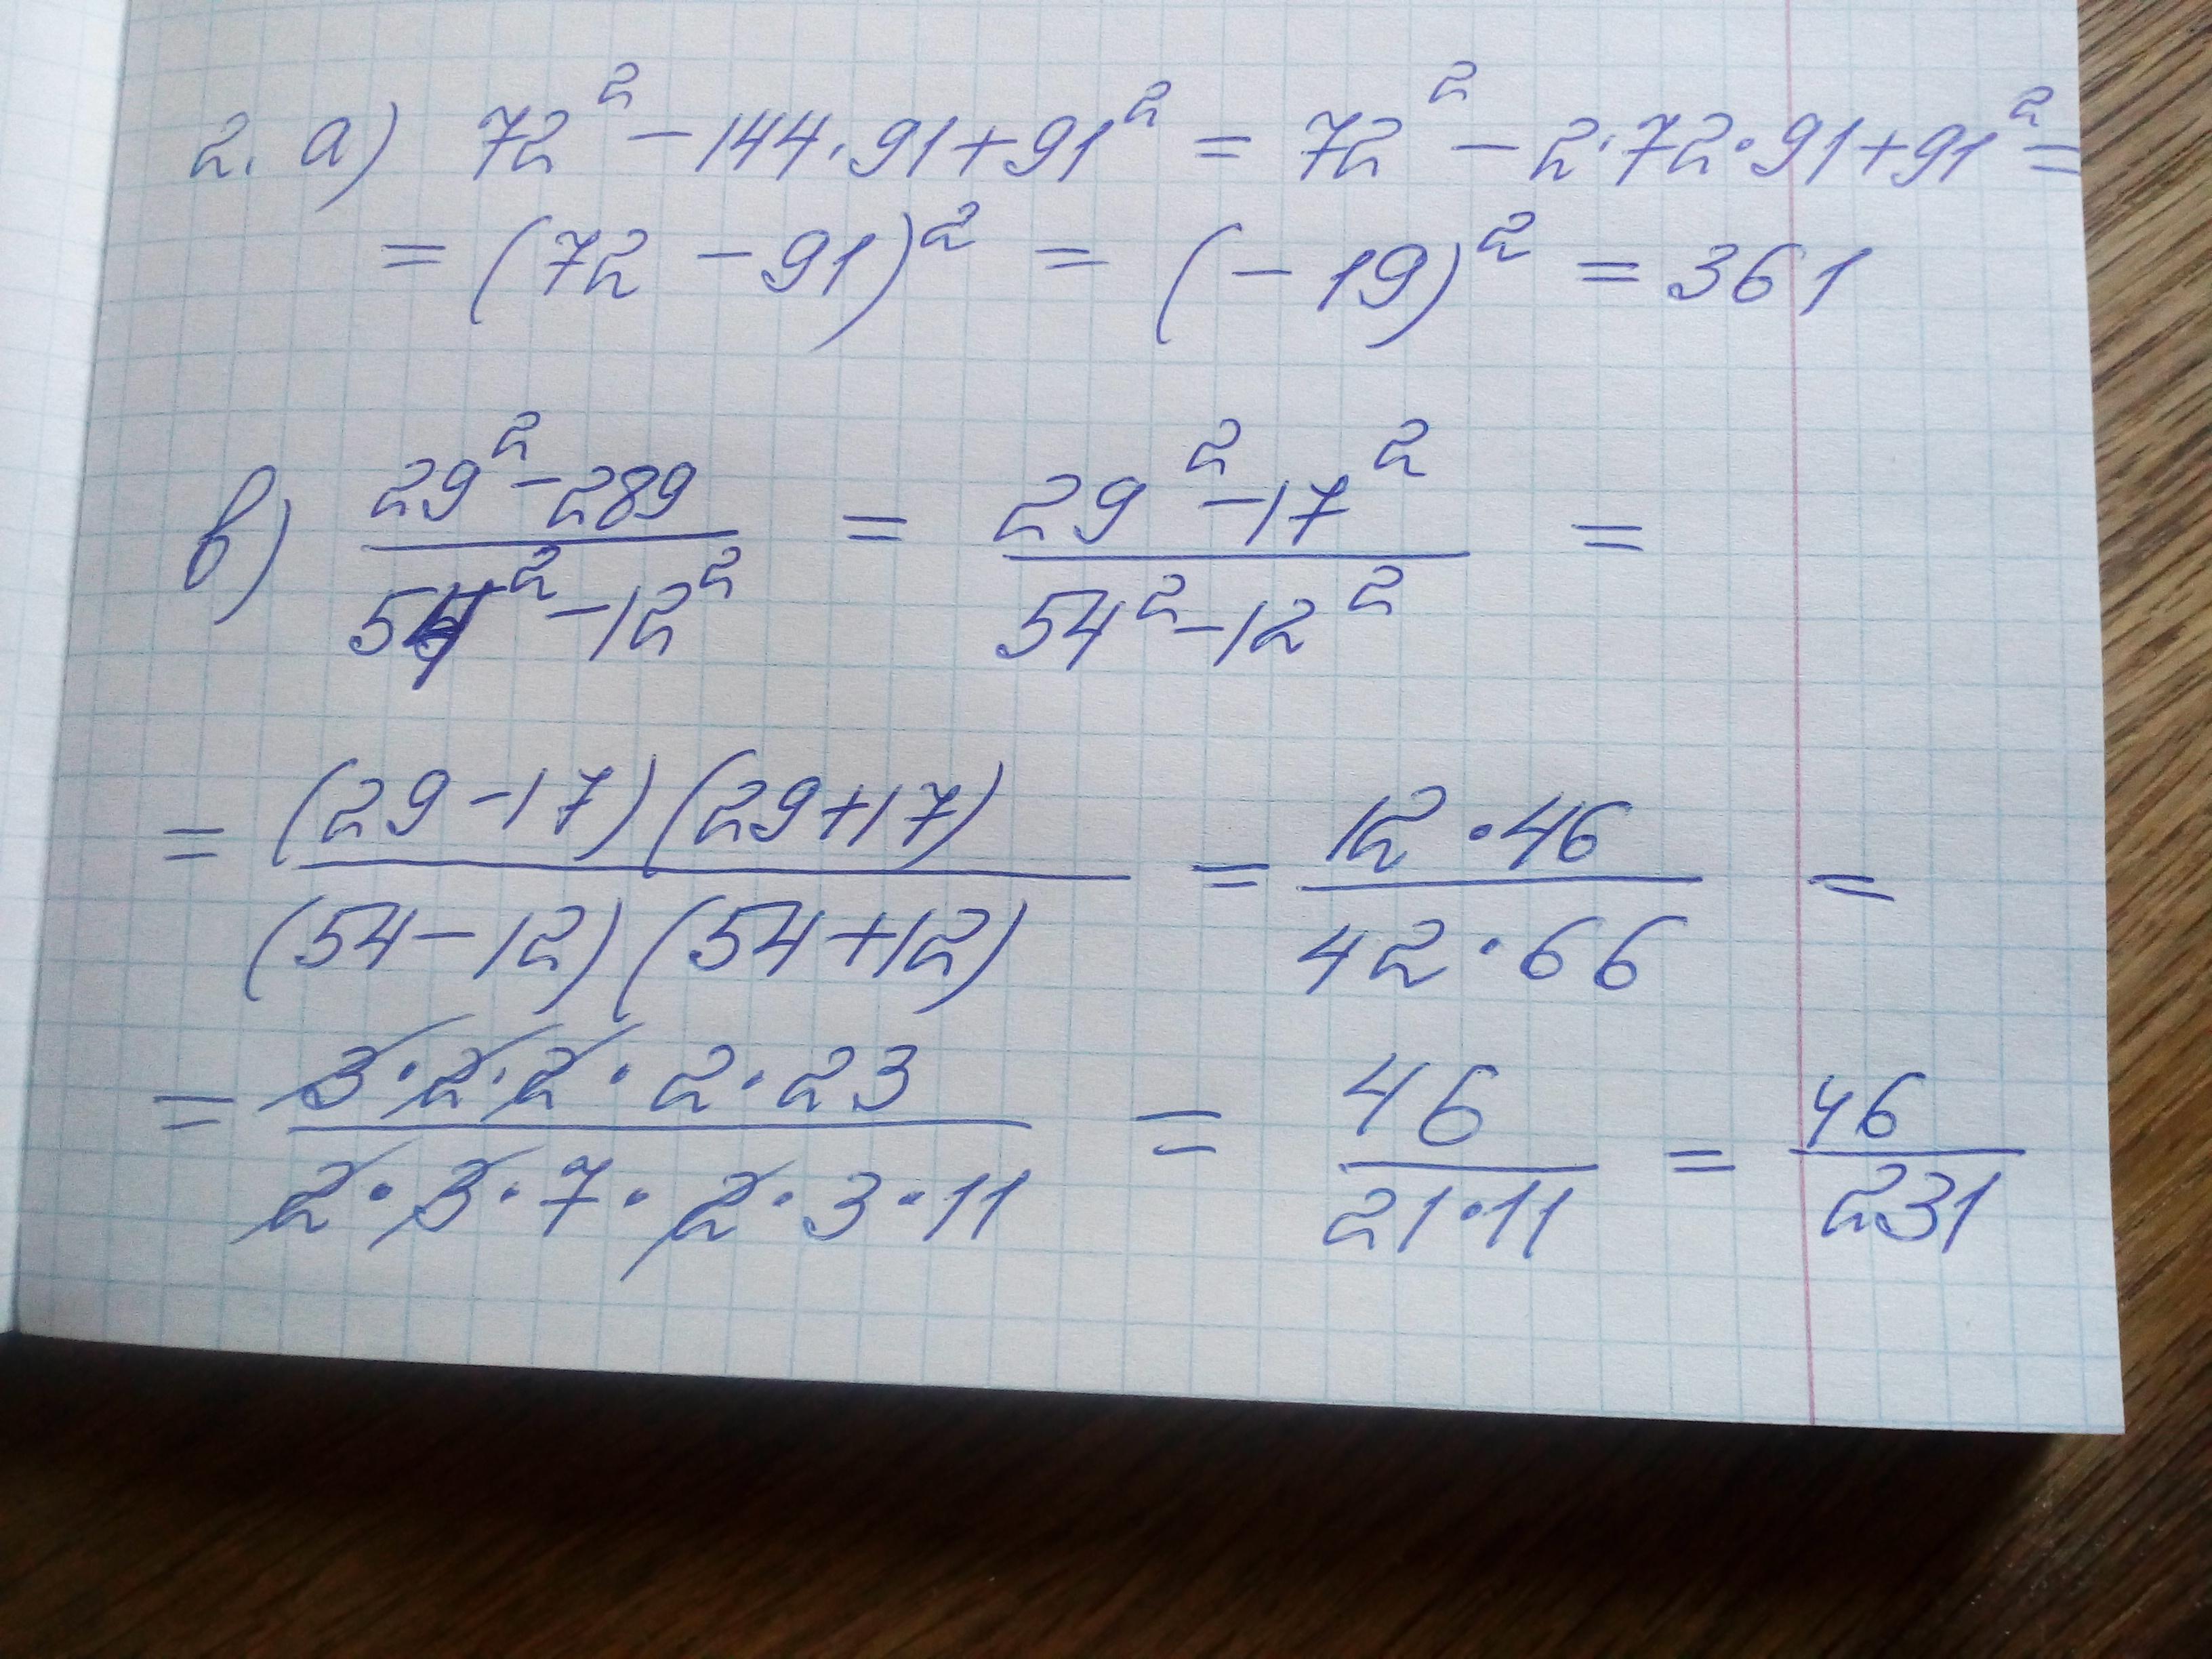 2. а) 72² - 144·91 + 91² = 72² - 2·72·91 + 91² =
= (72 - 91)² = (-19)² = 361
в) (29² - 289)/(54² - 12²) = (29² - 17²)/(54² - 12²) =
= ((29 - 17)(29 + 17))/((54 - 12)(54 + 12)) = (12·46)/(42·66) =
= (3·2·2·2·23)/(2·3·7·2·3·11) = 46/(21·11) = 46/231